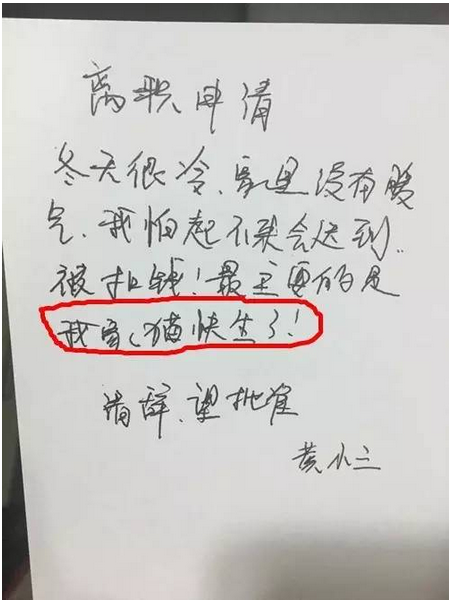 离职申请
冬天很冷,家里没有暖
气,我怕起不来会迟到,
被扣钱!最主要的是
我家心猫快生了!
请辞,望批准
黄小三